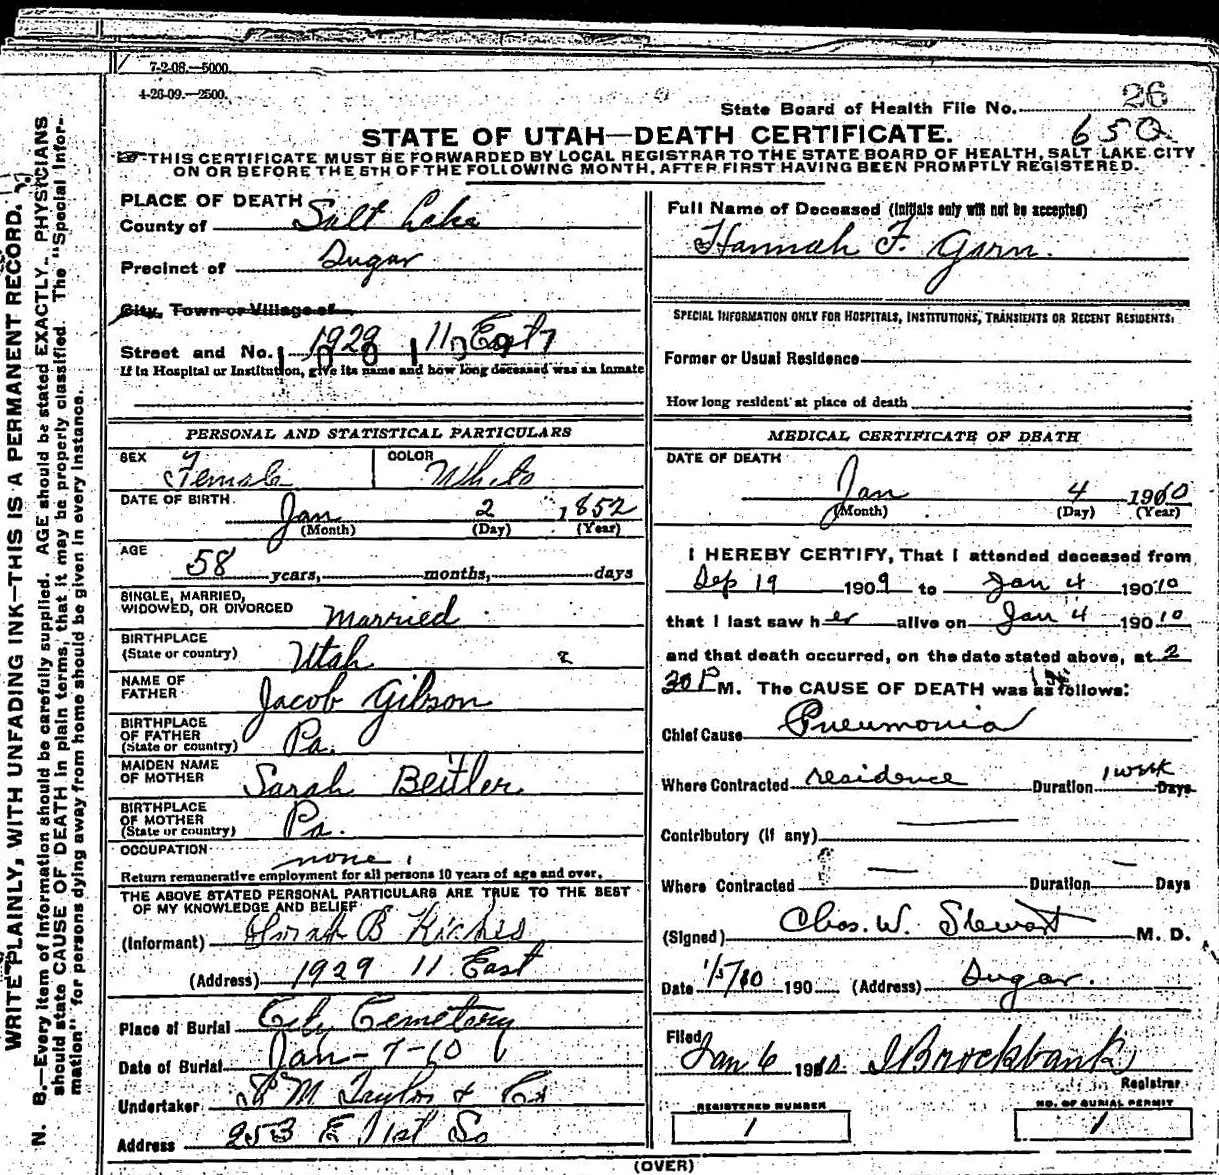 WRITE PLAINLY, WITH UNFADING INK—THIS IS A PERMANENT RECORD.
N. B.—Every item of information should be carefully supplied. AGE should be stated EXACTLY. PHYSICIANS
should state CAUSE OF DEATH in plain terms, that it may be properly classified. The "Special Infor-
mation" for persons dying away from home should be given in every instance.
7-2-08.—5000.
4-26-09.—2500.
State Board of Health File No. 26
650
STATE OF UTAH—DEATH CERTIFICATE.
THIS CERTIFICATE MUST BE FORWARDED BY LOCAL REGISTRAR TO THE STATE BOARD OF HEALTH, SALT LAKE CITY
ON OR BEFORE THE 5TH OF THE FOLLOWING MONTH, AFTER FIRST HAVING BEEN PROMPTLY REGISTERED.
PLACE OF DEATH
County of Salt Lake
Precinct of Sugar
City, Town or Village of
Street and No. 1929 11 East
If in Hospital or Institution, give its name and how long deceased was an inmate
PERSONAL AND STATISTICAL PARTICULARS
SEX Female COLOR White
DATE OF BIRTH Jan 2 1852
(Month) (Day) (Year)
AGE
58 years, months, days
SINGLE, MARRIED,
WIDOWED, OR DIVORCED Married
BIRTHPLACE
(State or country) Utah 2
NAME OF
FATHER Jacob Gibson
BIRTHPLACE
OF FATHER
(State or country) Pa.
MAIDEN NAME
OF MOTHER Sarah Beitler
BIRTHPLACE
OF MOTHER
(State or country) Pa.
OCCUPATION none
Return remunerative employment for all persons 10 years of age and over.
THE ABOVE STATED PERSONAL PARTICULARS ARE TRUE TO THE BEST
OF MY KNOWLEDGE AND BELIEF
(Informant) B
(Address) 1929 11 East
Place of Burial City Cemetery
Date of Burial Jan-7-10
Undertaker M Taylor & Co
Address 253 E 1st So
Full Name of Deceased (Initials only will not be accepted)
Hannah F. Garn.
SPECIAL INFORMATION ONLY FOR HOSPITALS, INSTITUTIONS, TRANSIENTS OR RECENT RESIDENTS.
Former or Usual Residence
How long resident at place of death
MEDICAL CERTIFICATE OF DEATH
DATE OF DEATH
Jan 4 1910
(Month) (Day) (Year)
I HEREBY CERTIFY, That I attended deceased from
Sep 19 1909 to Jan 4 19010
that I last saw her alive on Jan 4 19010
and that death occurred, on the date stated above, at 2
30 P M. The CAUSE OF DEATH was as follows:
Chief Cause Pneumonia
Where Contracted residence Duration 1 week Days
Contributory (if any)
Where Contracted — Duration — Days
(Signed) Chas. W. Stewart M. D.
Date 1/5/10 190 (Address) Sugar.
Filed Jan 6 1910 Brockbank
Registrar
REGISTERED NUMBER
1
NO. OF BURIAL PERMIT
1
(OVER)